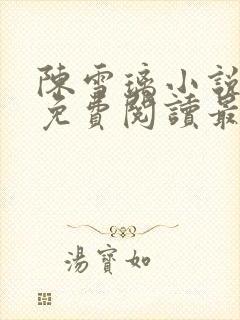 陳雪璃小說
免費閱讀最
湯寶如